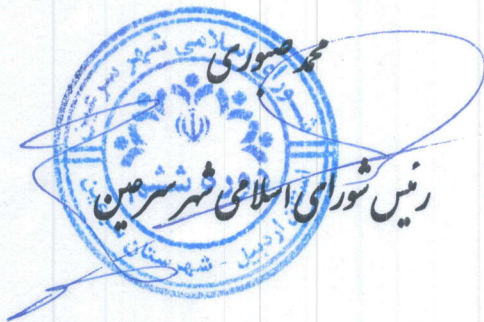 محمد صبوری
رئیس شورای اسلامی شهر سرعین
شورای اسلامی شهر سرعین
دوره ششم
اردبیل - شهرستان